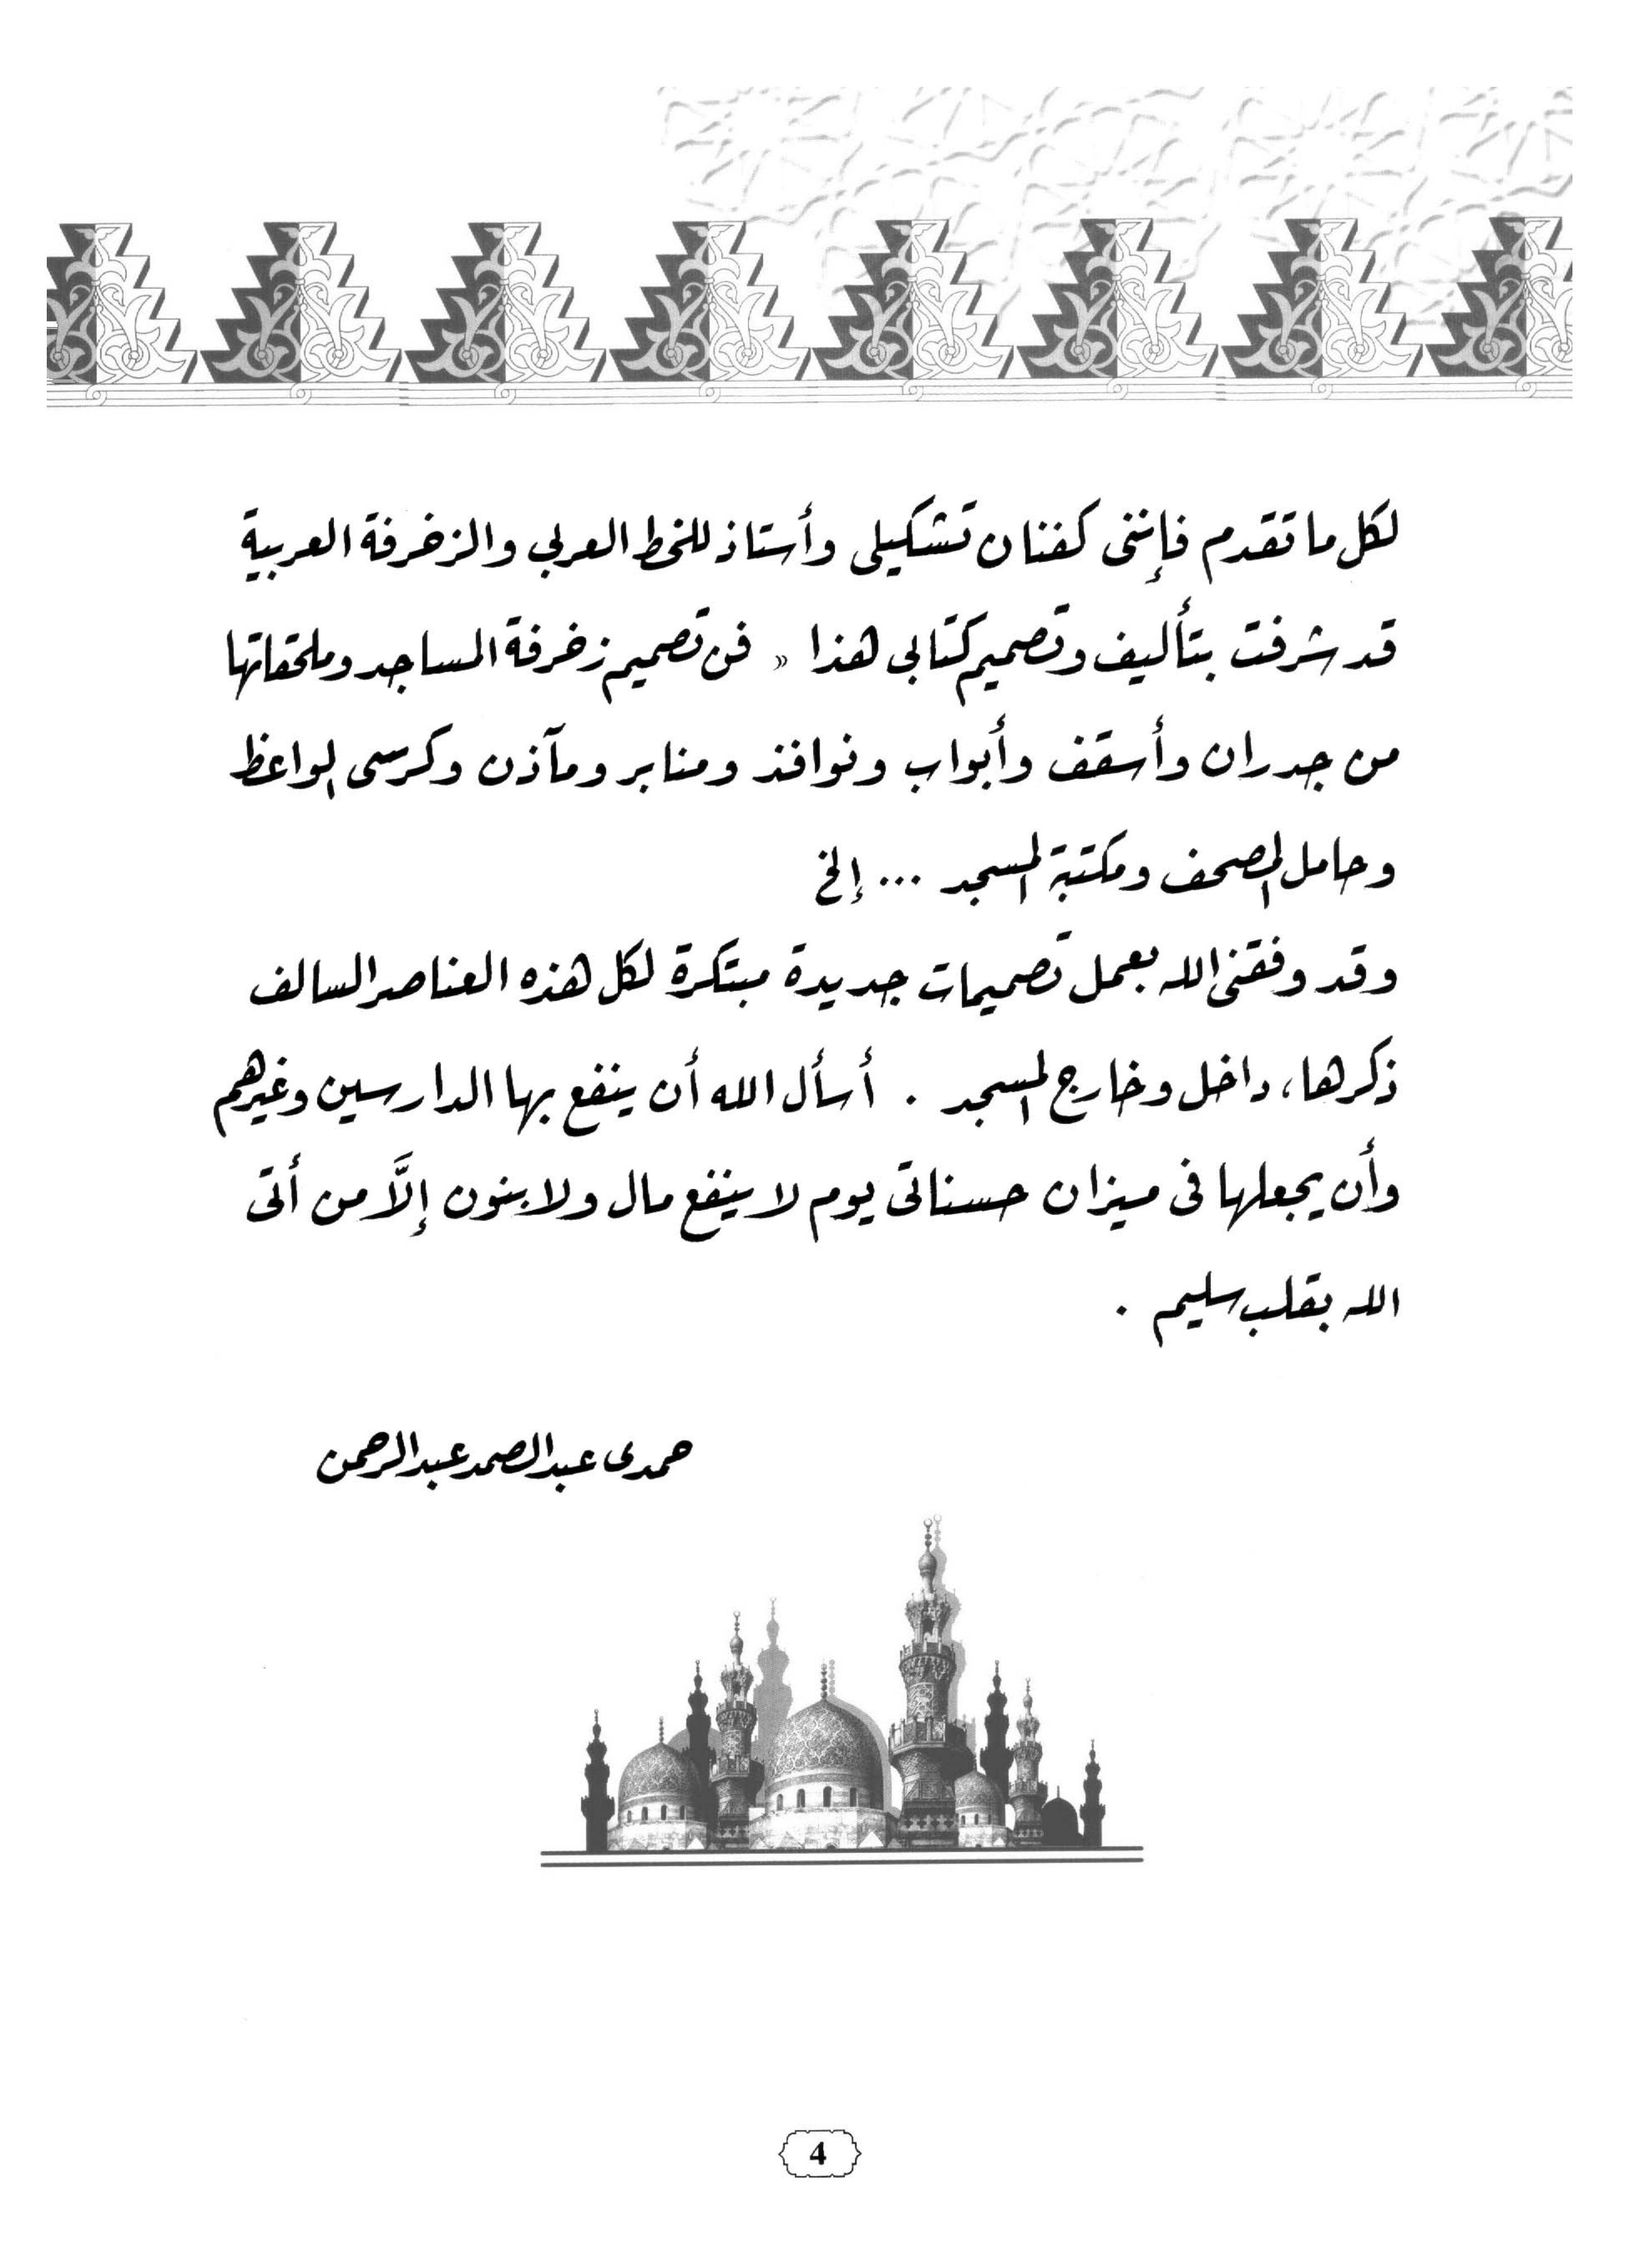 لكل ما تقدم فإننى كفنان تشكيلى وأستاذ للخط العربي والزخرفة العربية
قد شرفت بتأليف وتصميم كتابى هذا « فن تصميم زخرفة المساجد وملحقاتها
من جدران وأسقف وأبواب ونوافذ ومنابر ومآذن وكرسى الواعظ
وحامل المصحف ومكتبة المسجد ... إلخ
وقد وفقنى الله بعمل تصميمات جديدة مبتكرة لكل هذه العناصر السالف
ذكرها، داخل وخارج المسجد . أسأل الله أن ينفع بها الدارسين وغيرهم
وأن يجعلها فى ميزان حسناتى يوم لا ينفع مال ولا بنون إلَّا من أتى
الله بقلب سليم .
حمدى عبد الصمد عبد الرحمن
4